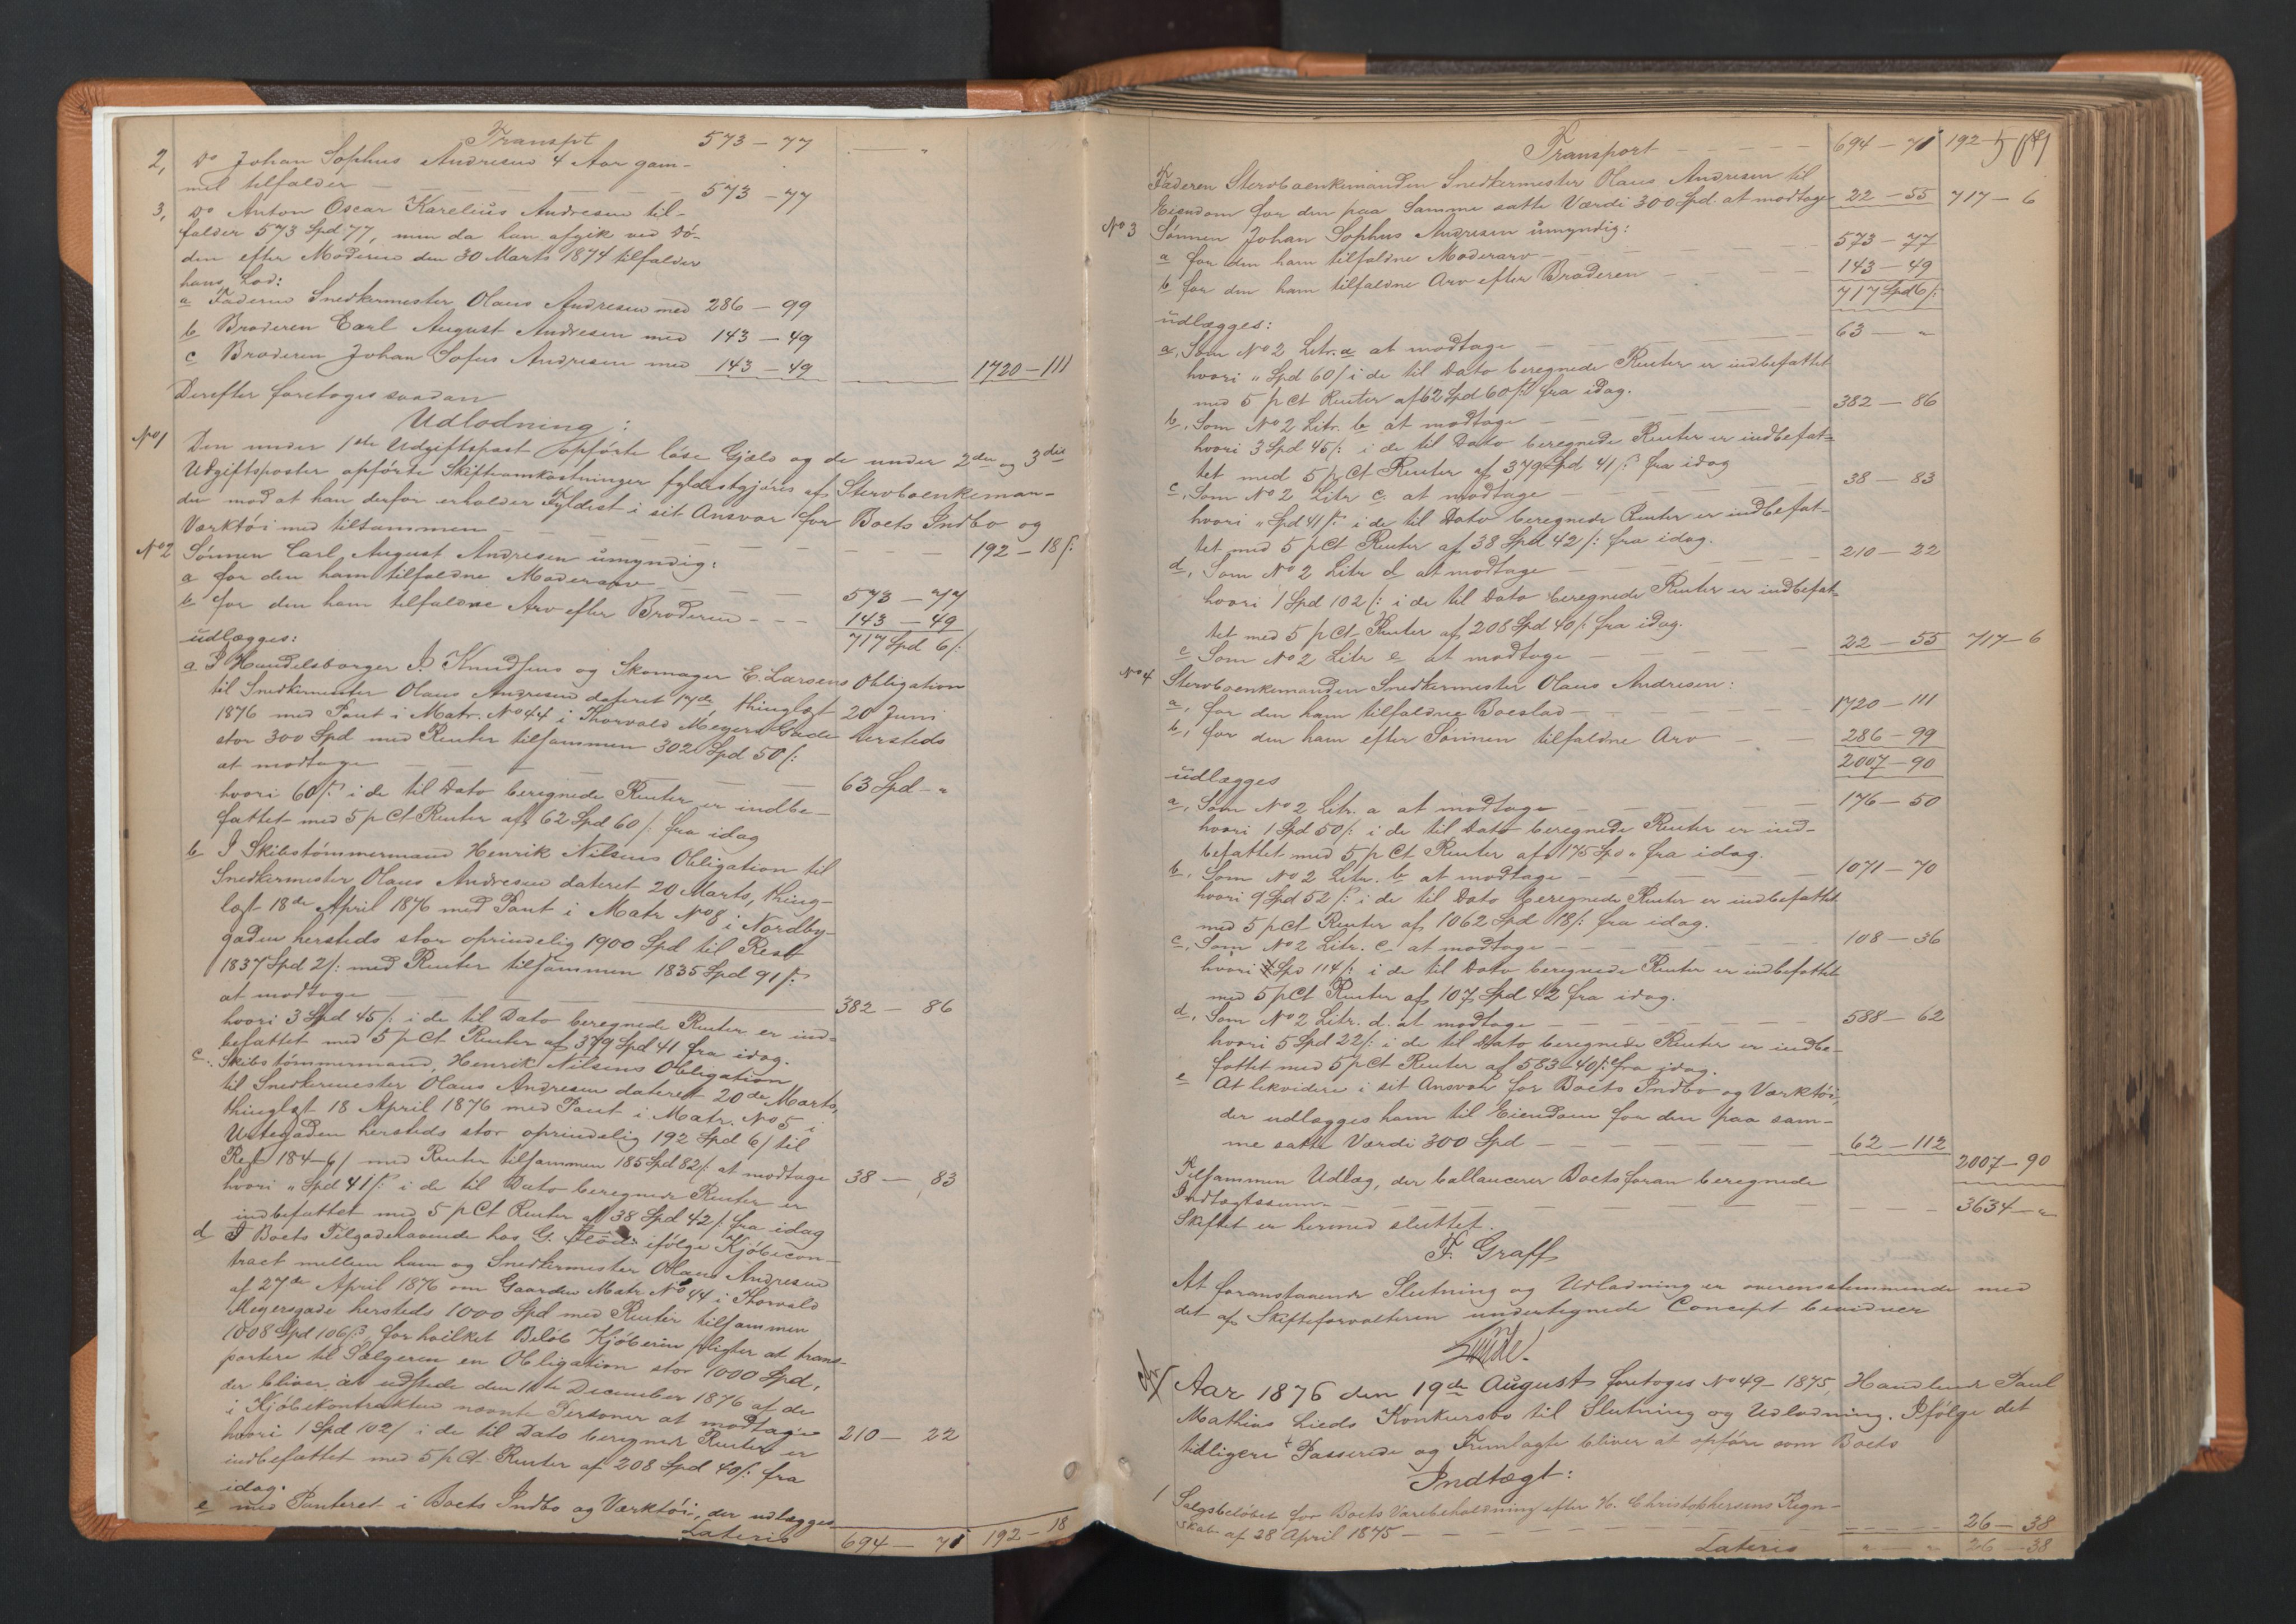 Transpt 573 - 77 — "
2, Do Johan Sophus Andresen 4 Aar gam-
mel tilfalder — 573 - 77
3, Do Anton Oscar Karelius Andresen til-
falder 573 Spd 77, men da han afgik ved Dö-
den efter Moderen den 30 Marts 1874 tilfalder
hans Lod:
a Faderen Snedkermester Olaus Andresen med 286 - 99
b Broderen Carl August Andresen med 143 - 49
c Broderen Johan Sofus Andresen med 143 - 49 1720 - 111
Derefter foretoges saadan
Udlodning:
No 1 Den under 1ste Udgiftspost opførte løse Gjæld og de under 2den og 3die
Udgiftsposter opförte Skifteomkostninger fyldestgjöres af Stervboenkeman-
den mod at han derfor erholder Fyldest i sit Ansvar for Boets Indbo og
Værktöi med tilsammen — 192 - 18 ſ:
No 2 Sönnen Carl August Andresen umyndig:
a for den ham tilfaldne Moderarv — 573 - 77
b for den ham tilfaldne Arv efter Broderen - - - 143 - 49
717 Spd 6 ſ:
udlægges:
a I Handelsborger P. Knudsens og Skomager E. Larsens Obligation
til Snedkermester Olaus Andresen dateret 17de, thinglæst 20 Juni
1876 med Pant i Matr. No 44 i Thorvald Meyers Gade hersteds
stor 300 Spd med Renter tilsammen 302 Spd 50 ſ:
at modtage — 63 Spd - "
hvori 60 ſ: i de til Dato beregnede Renter er indbe-
fattet med 5 p Ct Renter af 62 Spd 60 ſ: fra idag
b I Skibstömmermand Henrik Nilsens Obligation til
Snedkermester Olaus Andresen dateret 20 Marts, thing-
læst 18de April 1876 med Pant i Matr No 8 i Nordby-
gaden hersteds stor oprindelig 1900 Spd til Rest
1837 Spd 2 ſ: med Renter tilsammen 1835 Spd 91 ſ:
at modtage — 382 - 86
hvori 3 Spd 45 ſ: i de til Dato beregnede Renter er ind-
befattet med 5 p Ct Renter af 379 Spd 41 fra idag.
c. Skibstömmermand, Henrik Nilsens Obligation
til Snedkermester Olaus Andresen dateret 20de Marts,
thinglæst 18 April 1876 med Pant i Matr. No 5 i
Urtegaden hersteds stor oprindelig 192 Spd 6 ſ til
Rest 184 - 6 ſ med Renter tilsammen 185 Spd 82 ſ: at modtage 38 - 83
hvori " Spd 41 ſ: i de til Dato beregnede Renter er
indbefattet med 5 p Ct Renter af 38 Spd 42 ſ: fra idag
d I Boets Tilgodehavende hos G. ifölge Kjöbecon-
tract mellem ham og Snedkermester Olaus Andresen
af 27de April 1876 om Gaarden Matr No 44 i Thorvald
Meyersgade hersteds 1000 Spd med Renter tilsammen
1008 Spd 106 ſ:, for hvilket Belöb Kjöberen pligter at trans-
portere til Sælgeren en Obligation stor 1000 Spd,
der bliver at udstede den 11te December 1876 af de
i Kjöbekontrakten nævnte Personer at modtage 210 - 22
hvori 1 Spd 102 ſ i de til Dato beregnede Renter er
indbefattet med 5 p Ct. Renter af 208 Spd 40 ſ: fra
idag.
e med Panteret i Boets Indbo og Værktöi, der udlægges
Lateris 694 - 71 192 - 18
Transport - - - - - 694 - 71 192 -
Faderen Stervboenkemanden Snedkermester Olaus Andresen til
Eiendom for den paa Samme satte Værdi 300 Spd. at modtage 22 - 55 717 - 6
No 3 Sönnen Johan Sophus Andresen umyndig:
a for den ham tilfaldne Moderarv - 573 - 77
b for den ham tilfaldne Arv efter Broderen - 143 - 49
717 Spd 6 ſ:
udlægges:
a, Som No 2 Litr. a at modtage - 63 - "
hvori " Spd 60 ſ i de til Dato beregnede Renter er indbefattet
med 5 p Ct Renter af 62 Spd 60 ſ: fra idag.
b, Som No 2 Litr. b at modtage - 382 - 86
hvori 3 Spd 45 ſ: i de til Dato beregnede Renter er indbefat-
tet med 5 p Ct Renter af 379 Spd 41 ſ: fra idag
c, Som No 2 Litr c. at modtage - 38 - 83
hvori " Spd 41 ſ: i de til Dato beregnede Renter er indbefat-
tet med 5 p Ct Renter af 38 Spd 42 ſ: fra idag.
d, Som No 2 Litr d at modtage - 210 - 22
hvori 1 Spd 102 ſ: i de til Dato beregnede Renter er indbefat-
tet med 5 p Ct Renter af 208 Spd 40 ſ: fra idag.
e Som No 2 Litr e at modtage - 22 - 55 717 - 6
No 4 Stervboenkemanden Snedkermester Olaus Andresen:
a, for den ham tilfaldne Boeslod - 1720 - 111
b, for den ham efter Sönnen tilfaldne Arv - 286 - 99
2007 - 90
udlægges
a, Som No 2 Litr. a at modtage - 176 - 50
hvori 1 Spd 50 ſ: i de til Dato beregnede Renter er ind-
befattet med 5 p Ct Renter af 175 Spd " fra idag.
b, Som No 2 Litr. b at modtage - 1071 - 70
hvori 9 Spd 52 ſ: i de til Dato beregnede Renter er indbefattet
med 5 p Ct Renter af 1062 Spd 18 ſ: fra idag.
c, Som No 2 Litr. c at modtage - 108 - 36
hvori Spd 114 ſ: i de til Dato beregnede Renter er indbefattet
med 5 p Ct Renter af 107 Spd 42 fra idag.
d, Som No 2 Litr. d. at modtage - 588 - 62
hvori 5 Spd 22 ſ: i de til Dato beregnede Renter er indbe-
fattet med 5 p Ct Renter af 583 - 40 ſ: fra idag.
e At likvidere i sit Ansvar for Boets Indbo og Værktöi,
der udlægges ham til Eiendom for den paa sam-
me satte Værdi 300 Spd - 62 - 112 2007 - 90
Tilsammen Udlæg, der ballancerer Boets foran beregnede
Indtægtssum - 3634 - "
Skiftet er hermed sluttet.
F. Graff
At foranstaaende Slutning og Udlodning er overensstemmende med
det af Skifteforvalteren undertegnede Concept bevidner
Aar 1876 den 19de August foretoges No 49 - 1875, Handlende Paul
Mathias Lieds Konkursbo til Slutning og Udlodning. Ifølge det
tidligere Passerede og Fremlagte bliver at opföre som Boets
Indtægt:
1 Salgsbelöbet for Boets Varebeholdning efter H. Christophersens Regn-
skab af 28 April 1875 - 26 - 38
Lateris " - " 26 - 38